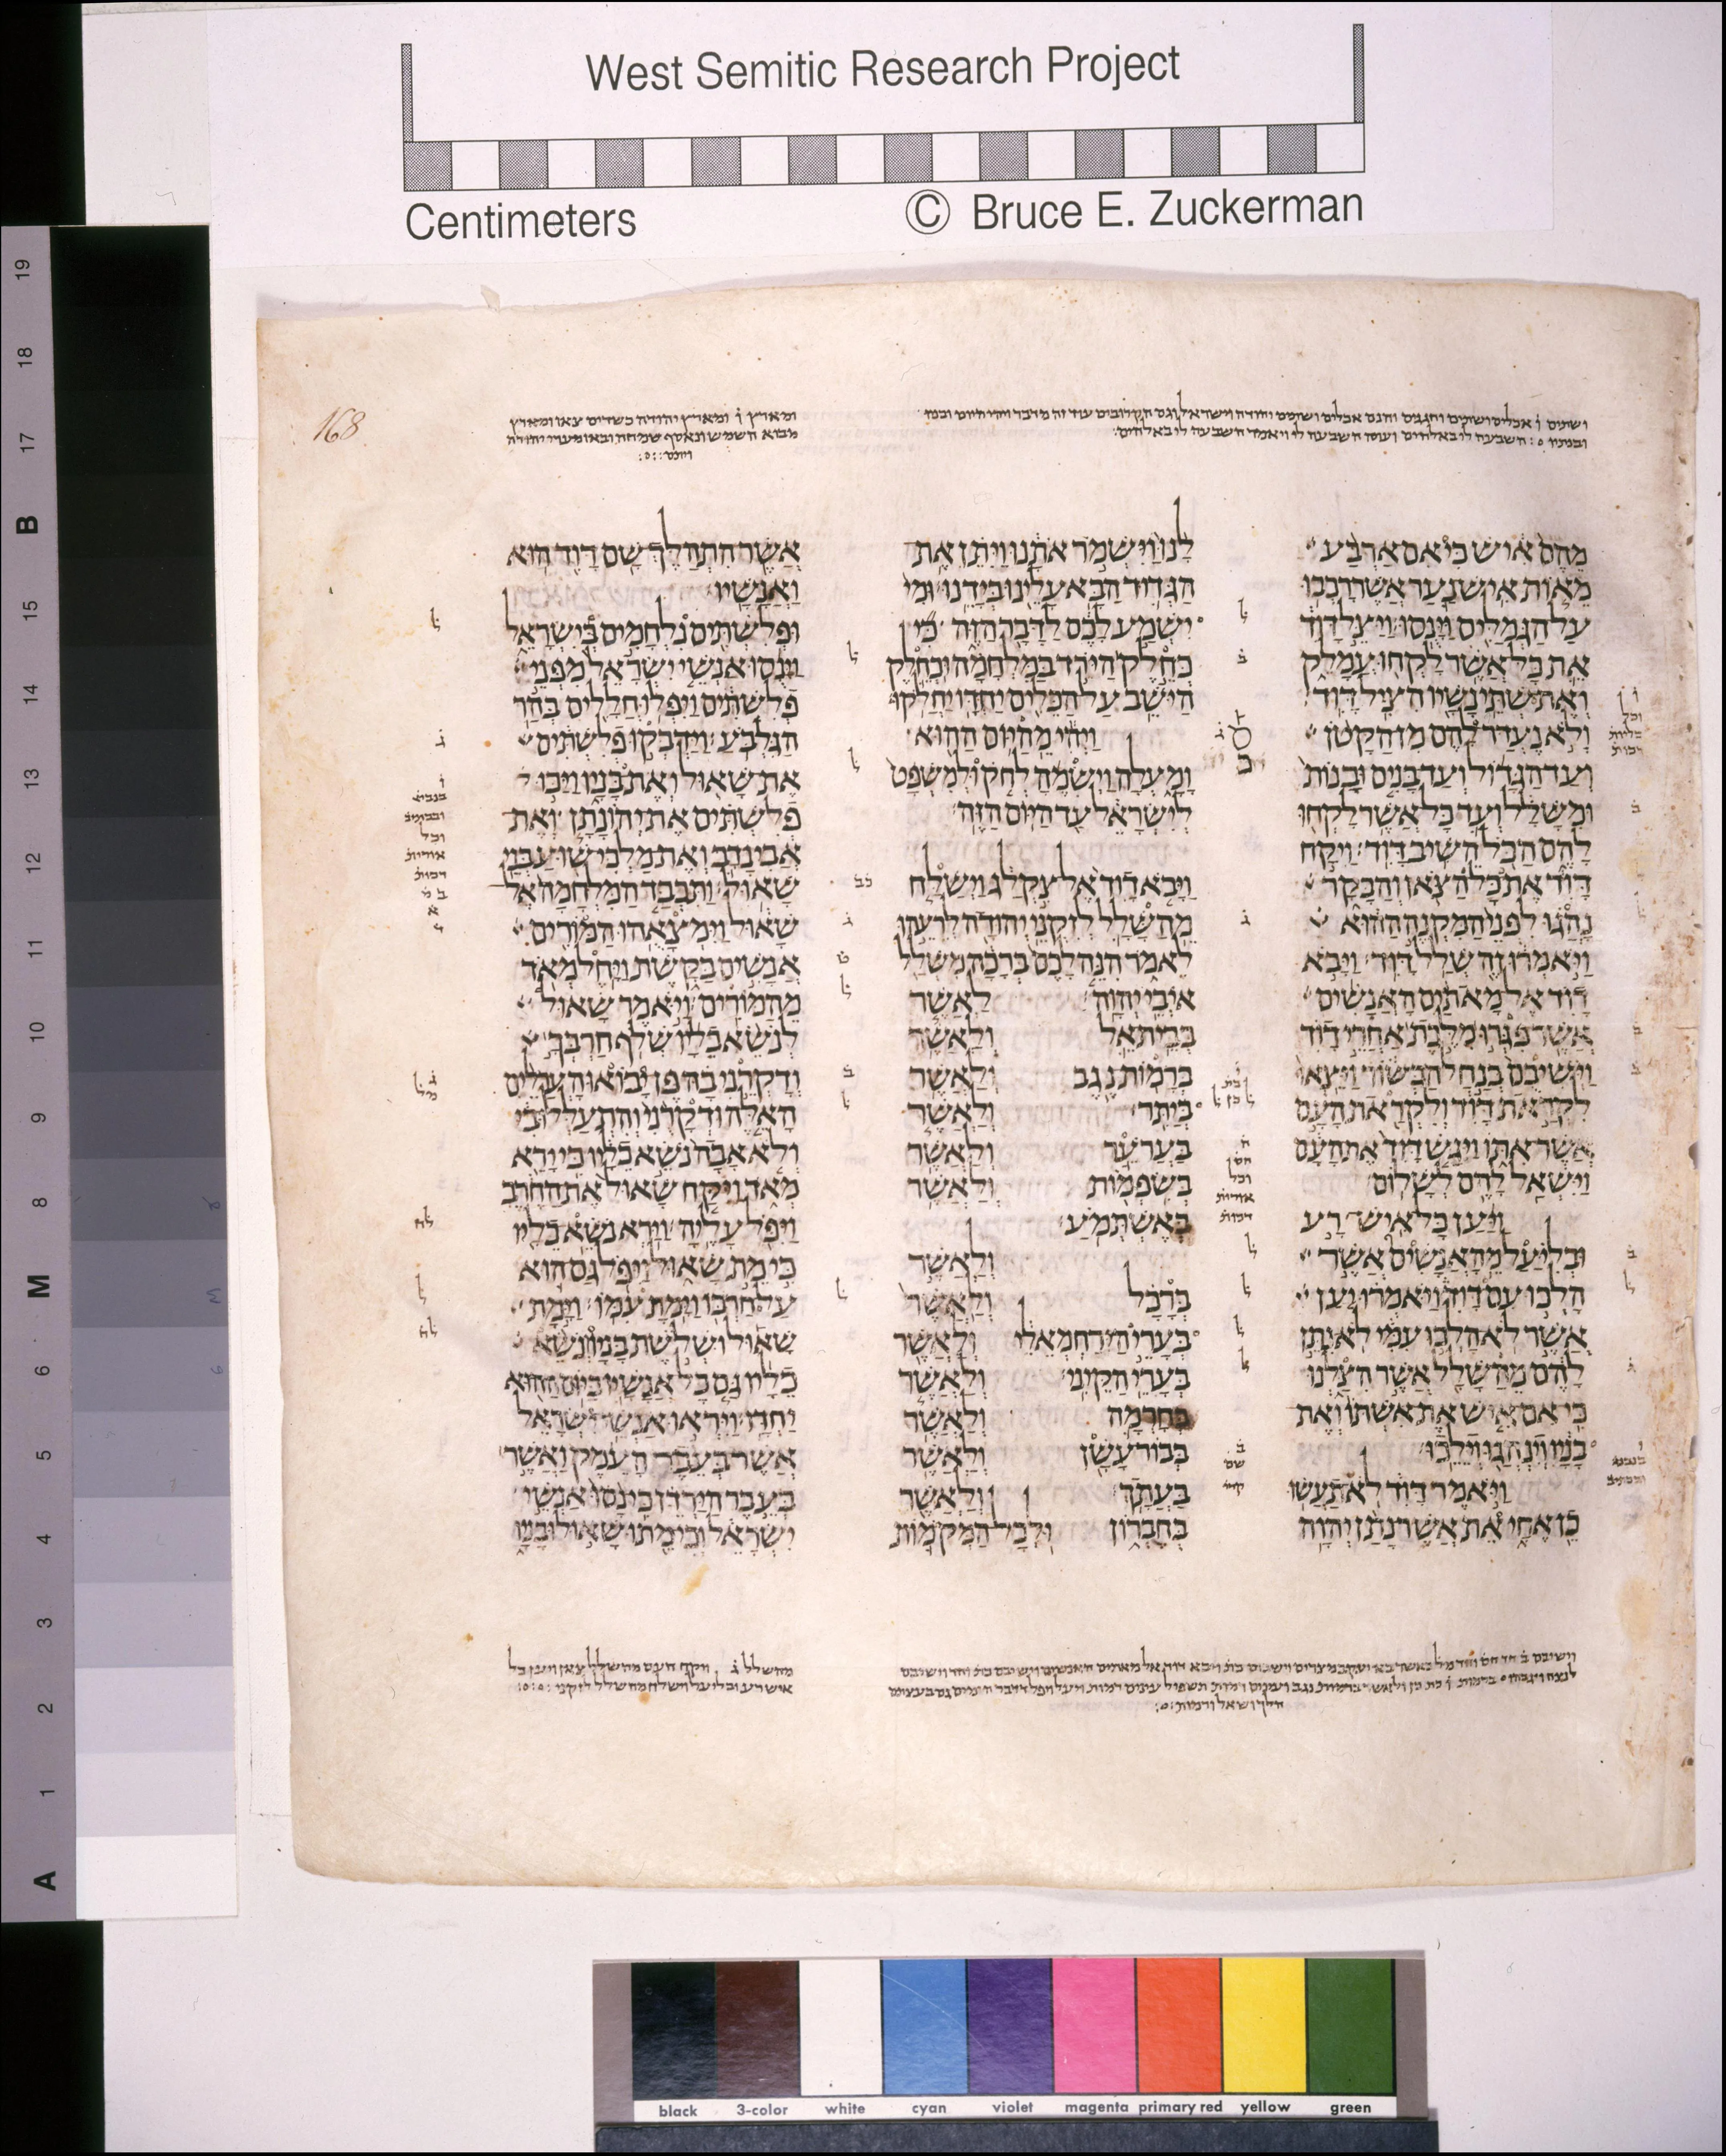 West Semitic Research Project
Centimeters
© Bruce E. Zuckerman
168
מהם איש כי אם ארבע
מאות איש נער אשר רכבו
על הגמלים וינסו ויצל דוד
את כל אשר לקחו עמלק
ואת שתי נשיו הציל דוד
ולא נעדר להם מן הקטן
ועד הגדול ועד בנים ובנות
ומשלל ועד כל אשר לקחו
להם הכל השיב דוד ויקח
דוד את כל הצאן והבקר
נהגו לפני המקנה ההוא
ויאמרו זה שלל דוד ויבא
דוד אל מאתים האנשים
אשר פגרו מלכת אחרי דוד
וישיבם בנחל הבשור ויצאו
לקראת דוד ולקראת העם
אשר אתו ויגש דוד את העם
וישאל להם לשלום
ויען כל איש רע
ובליעל מהאנשים אשר
הלכו עם דוד ויאמרו יען
אשר לא הלכו עמי לא נתן
להם מהשלל אשר הצלנו
כי אם איש את אשתו ואת
בניו וינהגו וילכו
ויאמר דוד לא תעשו
כן אחי את אשר נתן יהוה
לנו וישמר אתנו ויתן את
הגדוד הבא עלינו בידנו ומי
ישמע לכם לדבר הזה כי
כחלק הירד במלחמה וכחלק
הישב על הכלים יחדו יחלקו
ויהי מהיום ההוא
ומעלה וישמה לחק ולמשפט
לישראל עד היום הזה
ויבא דוד אל צקלג וישלח
מהשלל לזקני יהודה לרעהו
לאמר הנה לכם ברכה משלל
איבי יהוה לאשר
בבית אל ולאשר
ברמות נגב ולאשר
ביתר ולאשר
בערער ולאשר
בשפמות ולאשר
באשתמע
ולאשר
ברכל ולאשר
בערי הירחמאלי ולאשר
בערי הקיני ולאשר
בחרמה ולאשר
בבור עשן ולאשר
בעתך ולאשר
בחברון ולכל המקמות
אשר התהלך שם דוד הוא
ואנשיו
ופלשתים נלחמים בישראל
וינסו אנשי ישראל מפני
פלשתים ויפלו חללים בהר
הגלבע וידבקו פלשתים
את שאול ואת בניו ויכו
פלשתים את יהונתן ואת
אבינדב ואת מלכי שוע בני
שאול ותכבד המלחמה אל
שאול וימצאהו המורים
אנשים בקשת ויחל מאד
מהמורים ויאמר שאול
לנשא כליו שלף חרבך
ודקרני בה פן יבואו הערלים
האלה ודקרני והתעללו בי
ולא אבה נשא כליו כי ירא
מאד ויקח שאול את החרב
ויפל עליה וירא נשא כליו
כי מת שאול ויפל גם הוא
על חרבו וימת עמו וימת
שאול ושלשת בניו ונשא
כליו גם כל אנשיו ביום ההוא
יחדו ויראו אנשי ישראל
אשר בעבר העמק ואשר
בעבר הירדן כי נסו אנשי
ישראל וכי מתו שאול ובניו
19
18
17
B
15
14
13
12
11
10
9
8
M
6
5
4
3
2
1
A
black 3-color white cyan violet magenta primary red yellow green